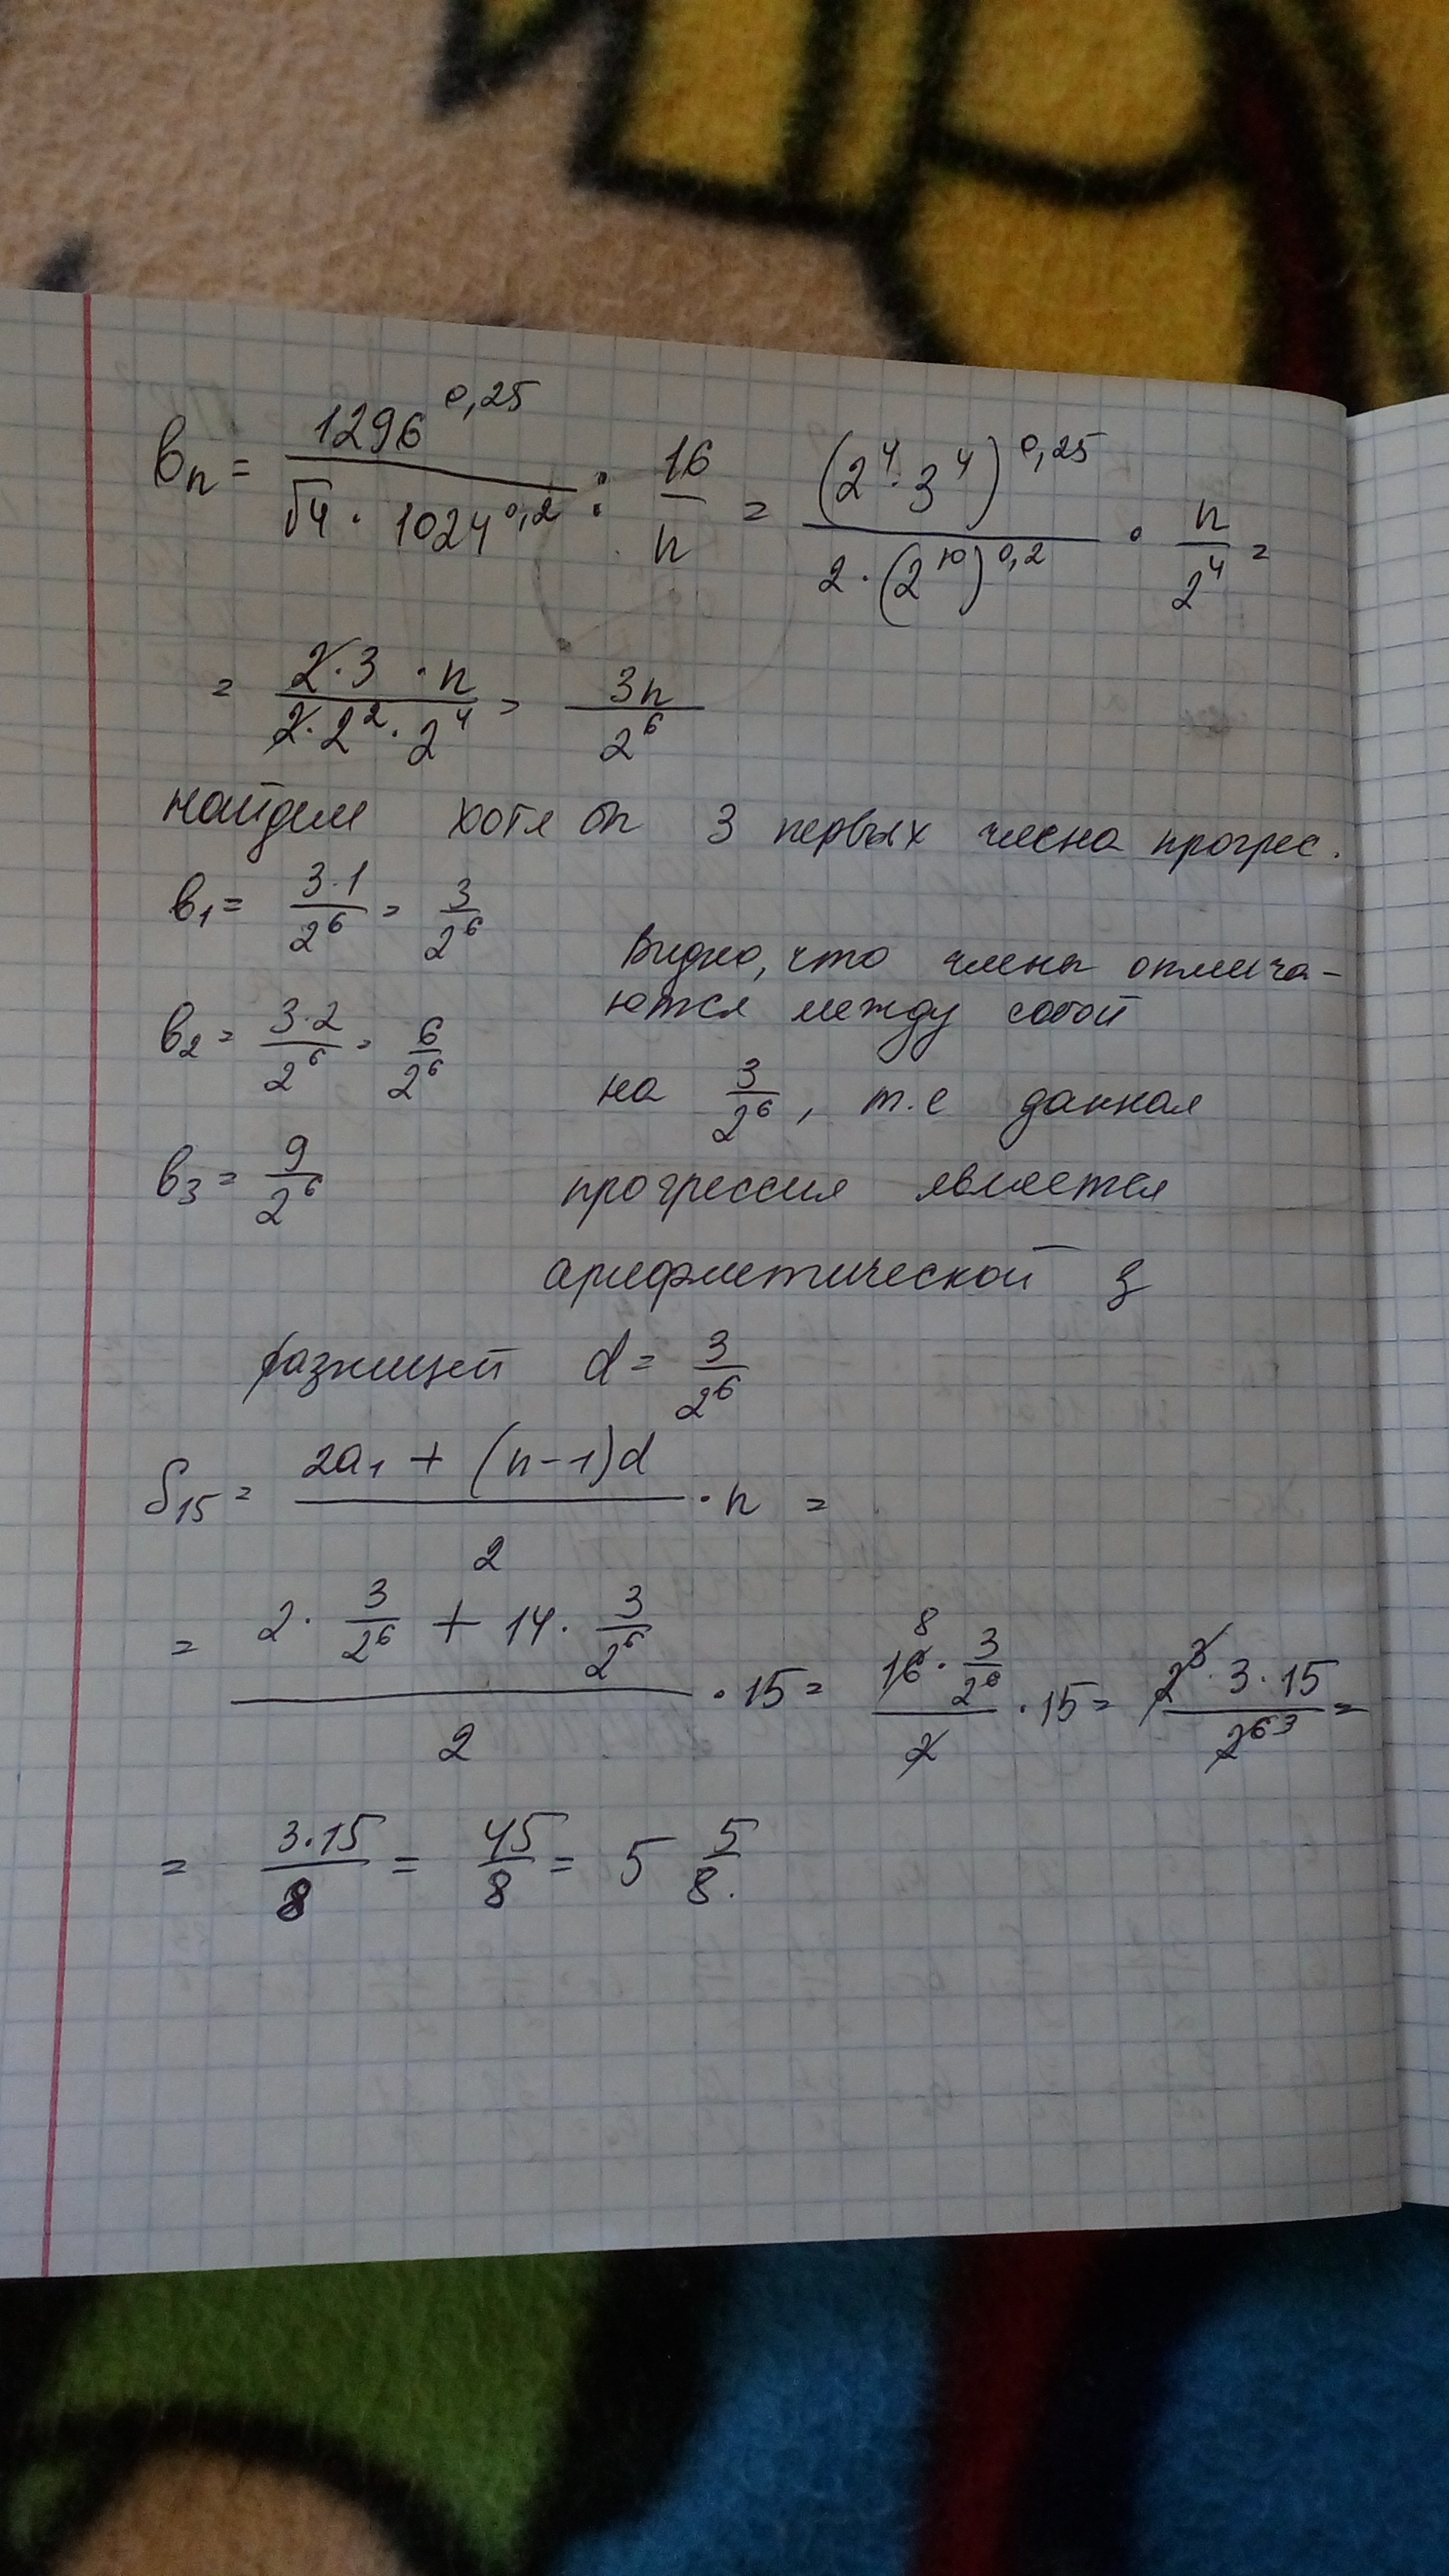 bₙ = 1296^0,25 / (√4 · 1024^0,2) : 16/n = (2⁴ · 3⁴)^0,25 / (2 · (2¹⁰)^0,2) · n/2⁴ =
= (2·3 · n) / (2·2²·2⁴) = 3n/2⁶
найдем хотя бы 3 первых члена прогрес.
b₁ = 3·1/2⁶ = 3/2⁶
b₂ = 3·2/2⁶ = 6/2⁶
b₃ = 9/2⁶
Видно, что члены отлича-
ются между собой
на 3/2⁶, т.е данная
прогрессия является
арифметической з
разницей d = 3/2⁶
S₁₅ = (2a₁ + (n-1)d)/2 · n =
= (2 · 3/2⁶ + 14 · 3/2⁶)/2 · 15 = (16 8 · 3/2⁶)/2 · 15 = (2³ · 3 · 15)/2⁶ ³ =
= 3·15/8 = 45/8 = 5 5/8.